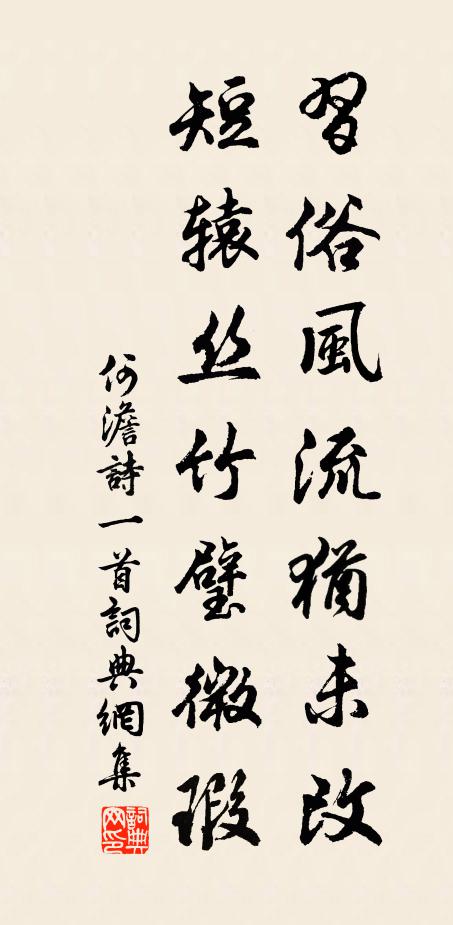 習俗風流猶未改
短辕丝竹璧微瑕
何澹詩一首詞典網集
詞典
网印